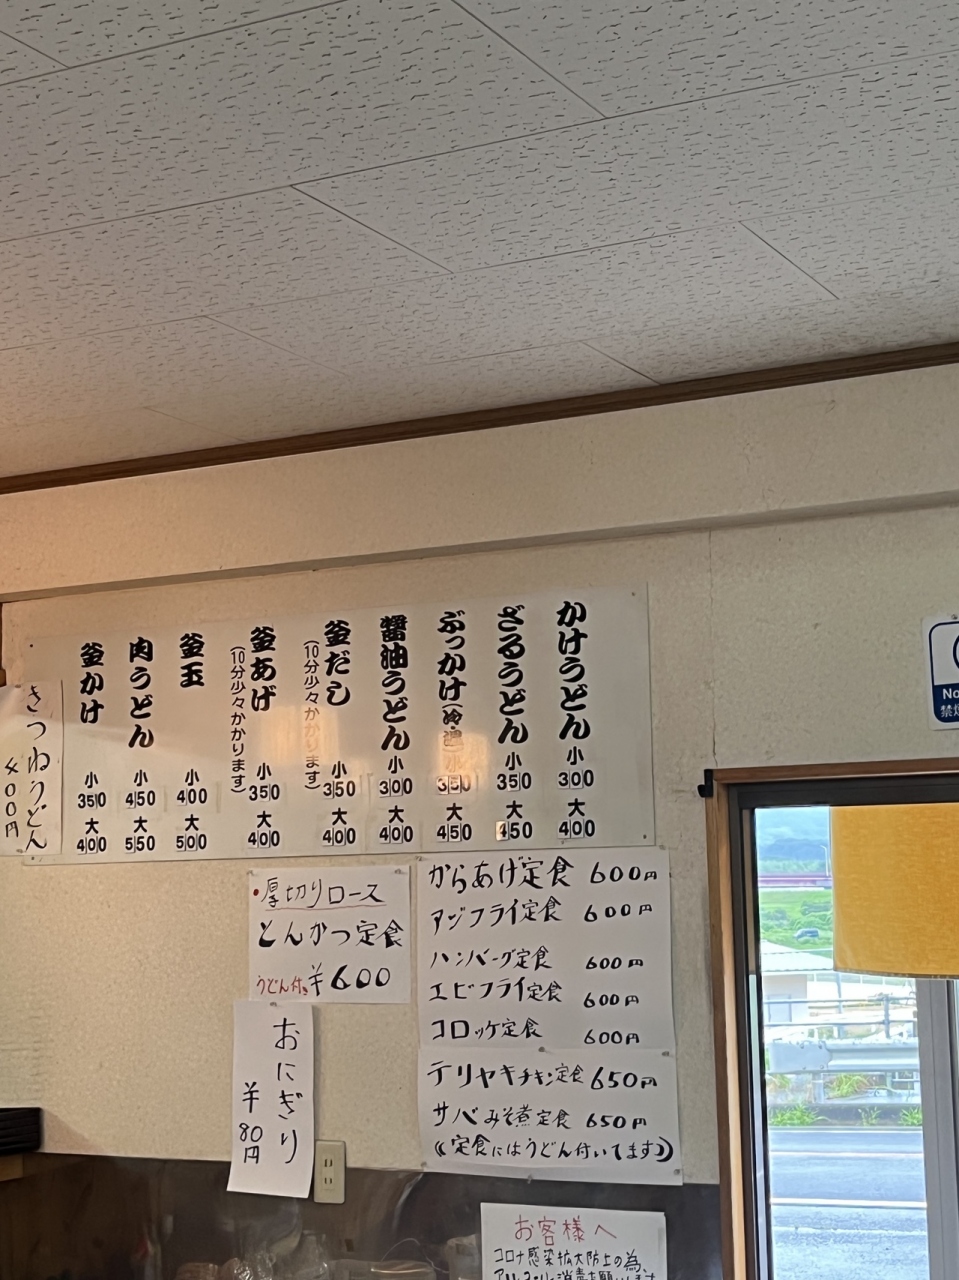 かけうどん 小 300 大 400
ざるうどん 小 350 大 450
ぶっかけ(冷・温) 小 350 大 450
醤油うどん 小 300 大 400
釜だし 小 350 大 400
(10分少々かかります)
釜あげ 小 350 大 400
(10分少々かかります)
釜玉 小 400 大 500
肉うどん 小 450 大 550
釜かけ 小 350 大 400
きつねうどん
400円
・厚切りロース
とんかつ定食
うどん付き ¥600
おにぎり
¥80円
からあげ定食 600円
アジフライ定食 600円
ハンバーグ定食 600円
エビフライ定食 600円
コロッケ定食 600円
テリヤキチキン定食 650円
サバみそ煮定食 650円
(定食にはうどん付いてます)
お客様へ
コロナ感染拡大防止の為、
No
禁煙